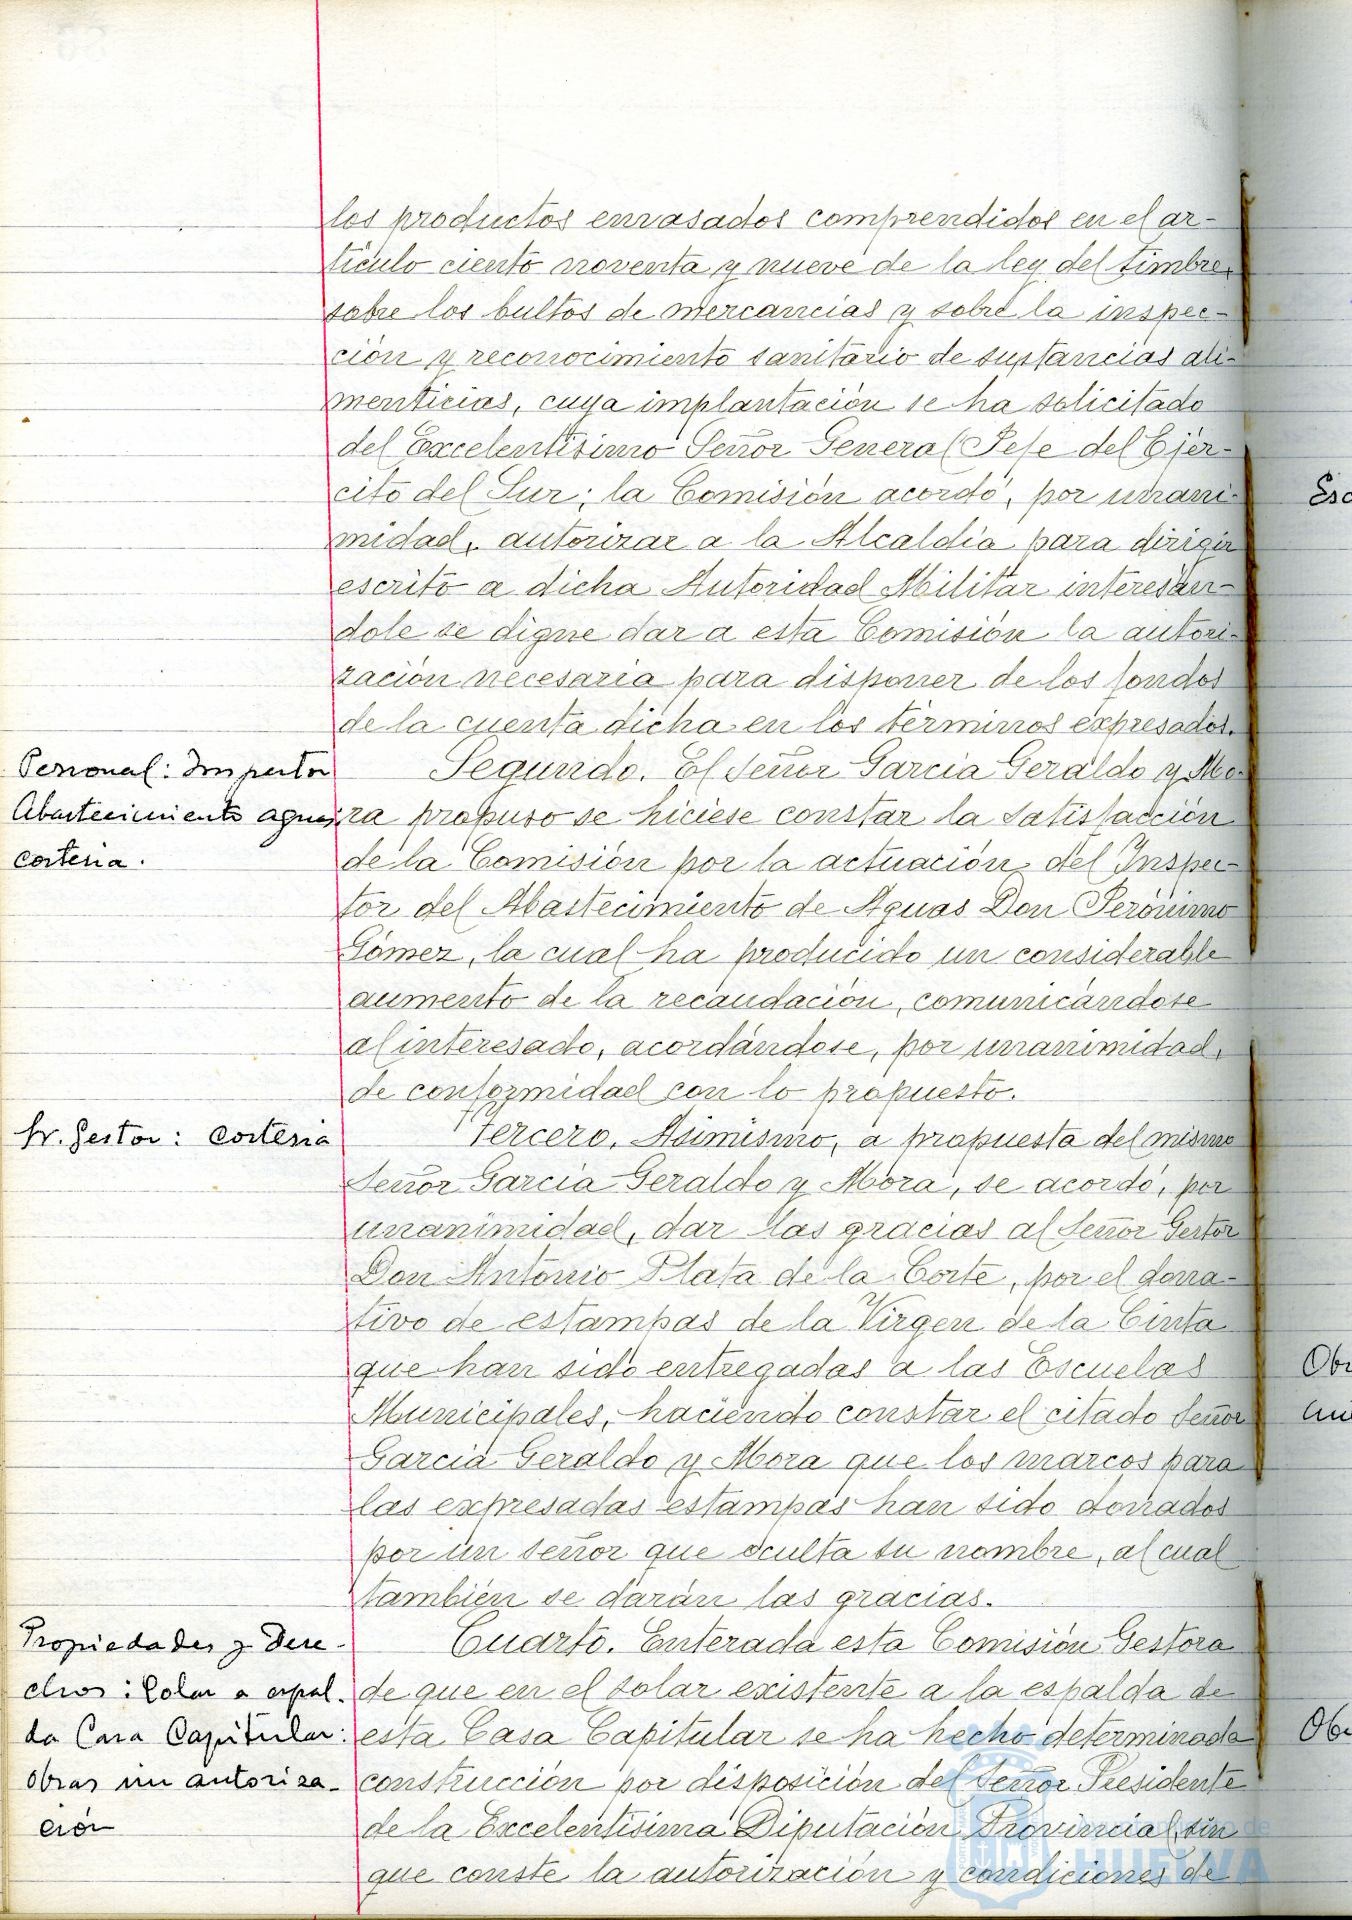 los productos envasados comprendidos en el ar-
tículo ciento noventa y nueve de la ley del timbre,
sobre los bultos de mercancías y sobre la inspec-
ción y reconocimiento sanitario de sustancias ali-
menticias, cuya implantación se ha solicitado
del Excelentísimo Señor General Jefe del Ejér-
cito del Sur; la Comisión acordó, por unani-
midad, autorizar a la Alcaldía para dirigir
escrito a dicha Autoridad Militar interesán-
dole se digne dar a esta Comisión la autori-
zación necesaria para disponer de los fondos
de la cuenta dicha en los términos expresados.
Personal: Inspector
Abastecimiento aguas:
cortesia.
Segundo. El Señor García Geraldo y Mo-
ra propuso se hiciese constar la satisfacción
de la Comisión por la actuación del Inspec-
tor del Abastecimiento de Aguas Don Jerónimo
Gómez, la cual ha producido un considerable
aumento de la recaudación, comunicándose
al interesado, acordándose, por unanimidad,
de conformidad con lo propuesto.
Sr. Gestor: cortesia
Tercero. Asimismo, a propuesta del mismo
Señor García Geraldo y Mora, se acordó, por
unanimidad, dar las gracias al Señor Gestor
Don Antonio Plata de la Corte, por el dona-
tivo de estampas de la Virgen de la Cinta
que han sido entregadas a las Escuelas
Municipales, haciendo constar el citado Señor
García Geraldo y Mora que los marcos para
las expresadas estampas han sido donados
por un señor que oculta su nombre, al cual
también se darán las gracias.
Propiedades y Dere-
chos: Solar a espal-
da Casa Capitular:
obras sin autoriza-
ción
Cuarto. Enterada esta Comisión Gestora
de que en el solar existente a la espalda de
esta Casa Capitular se ha hecho determinada
construcción por disposición del Señor Presidente
de la Excelentísima Diputación Provincial, sin
que conste la autorización y condiciones de
Esc
Obr
Obr
HUELVA